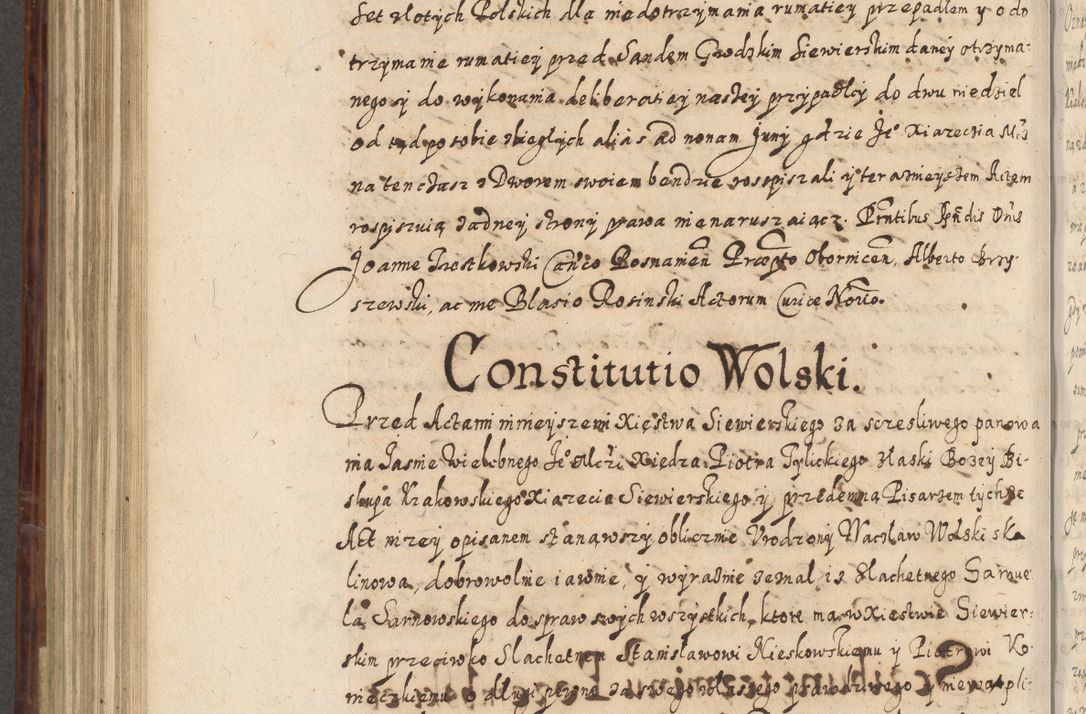 set złotych Polskich dla niedotrzymania rumatiey przepadłem y o do
trzymanie rumatiey przed Sandem Grodzkim Siewierskim daney otrzyma:
nego y do wykonania deliberatiey naszey przypadłey do dwu niedziel
od tąd po sobie zbiegłych alias ad nonam Junij gdzie Je° Xiarzecia Mći
na ten czasz z Dworem swoiem bendzie rospiszali y teraznieyszem Actem
rospiszuią żadney strony prawa nie naruszaiącz. Prntibus Spndis Dnis
Joanne Trestkowski Canco Posnamen Praepto Obornicen, Alberto Brzy
szewski, ac me Blasio Rosinski Actorum Curiae Norio.
Constitutio Wolski.
Przed Actami ninieyszemi Xięstwa Siewierskiego za sczesliwego panowa
nia Jasnie Wielebnego Je° Mczi Xiedza Piotra Tylickiego z łaski Bozey Bi-
skupa Krakowskiego Xiazecia Siewierskiego y przedemną Pisarzem tychze
Act nizey opisanem stanąwszy oblicznie Urodzony Wacław Wolski ska
linowa, dobrowolnie iawnie, y wyraznie zeznal isz Slachetnego Samue
la Sarnowskiego do spraw swych wszystkich, ktore ma w Xiestwie Siewier-
skim przeciwko Slachetnem Stanisławowi Kieskowskiemu y Piotrowi Ko
nieczkiemu o długi pewne za swego własnego prawdziwego y niewątpli-